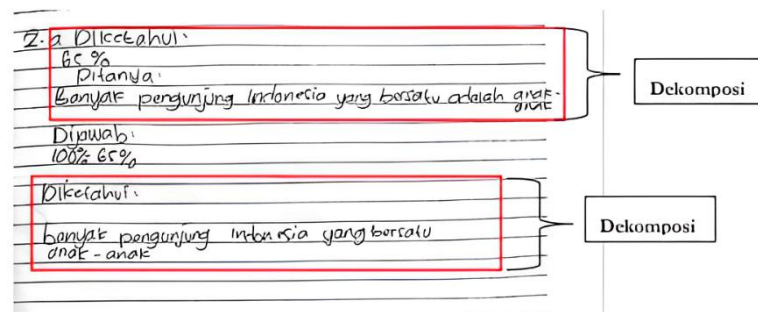 2.a Diketahui:
65 %
Ditanya:
Banyak pengunjung Indonesia yang bersatu adalah anak-
anak
Dekomposi
Dijawab:
100% 65%
Diketahui:
banyak pengunjung Indonesia yang bersatu
anak-anak
Dekomposi